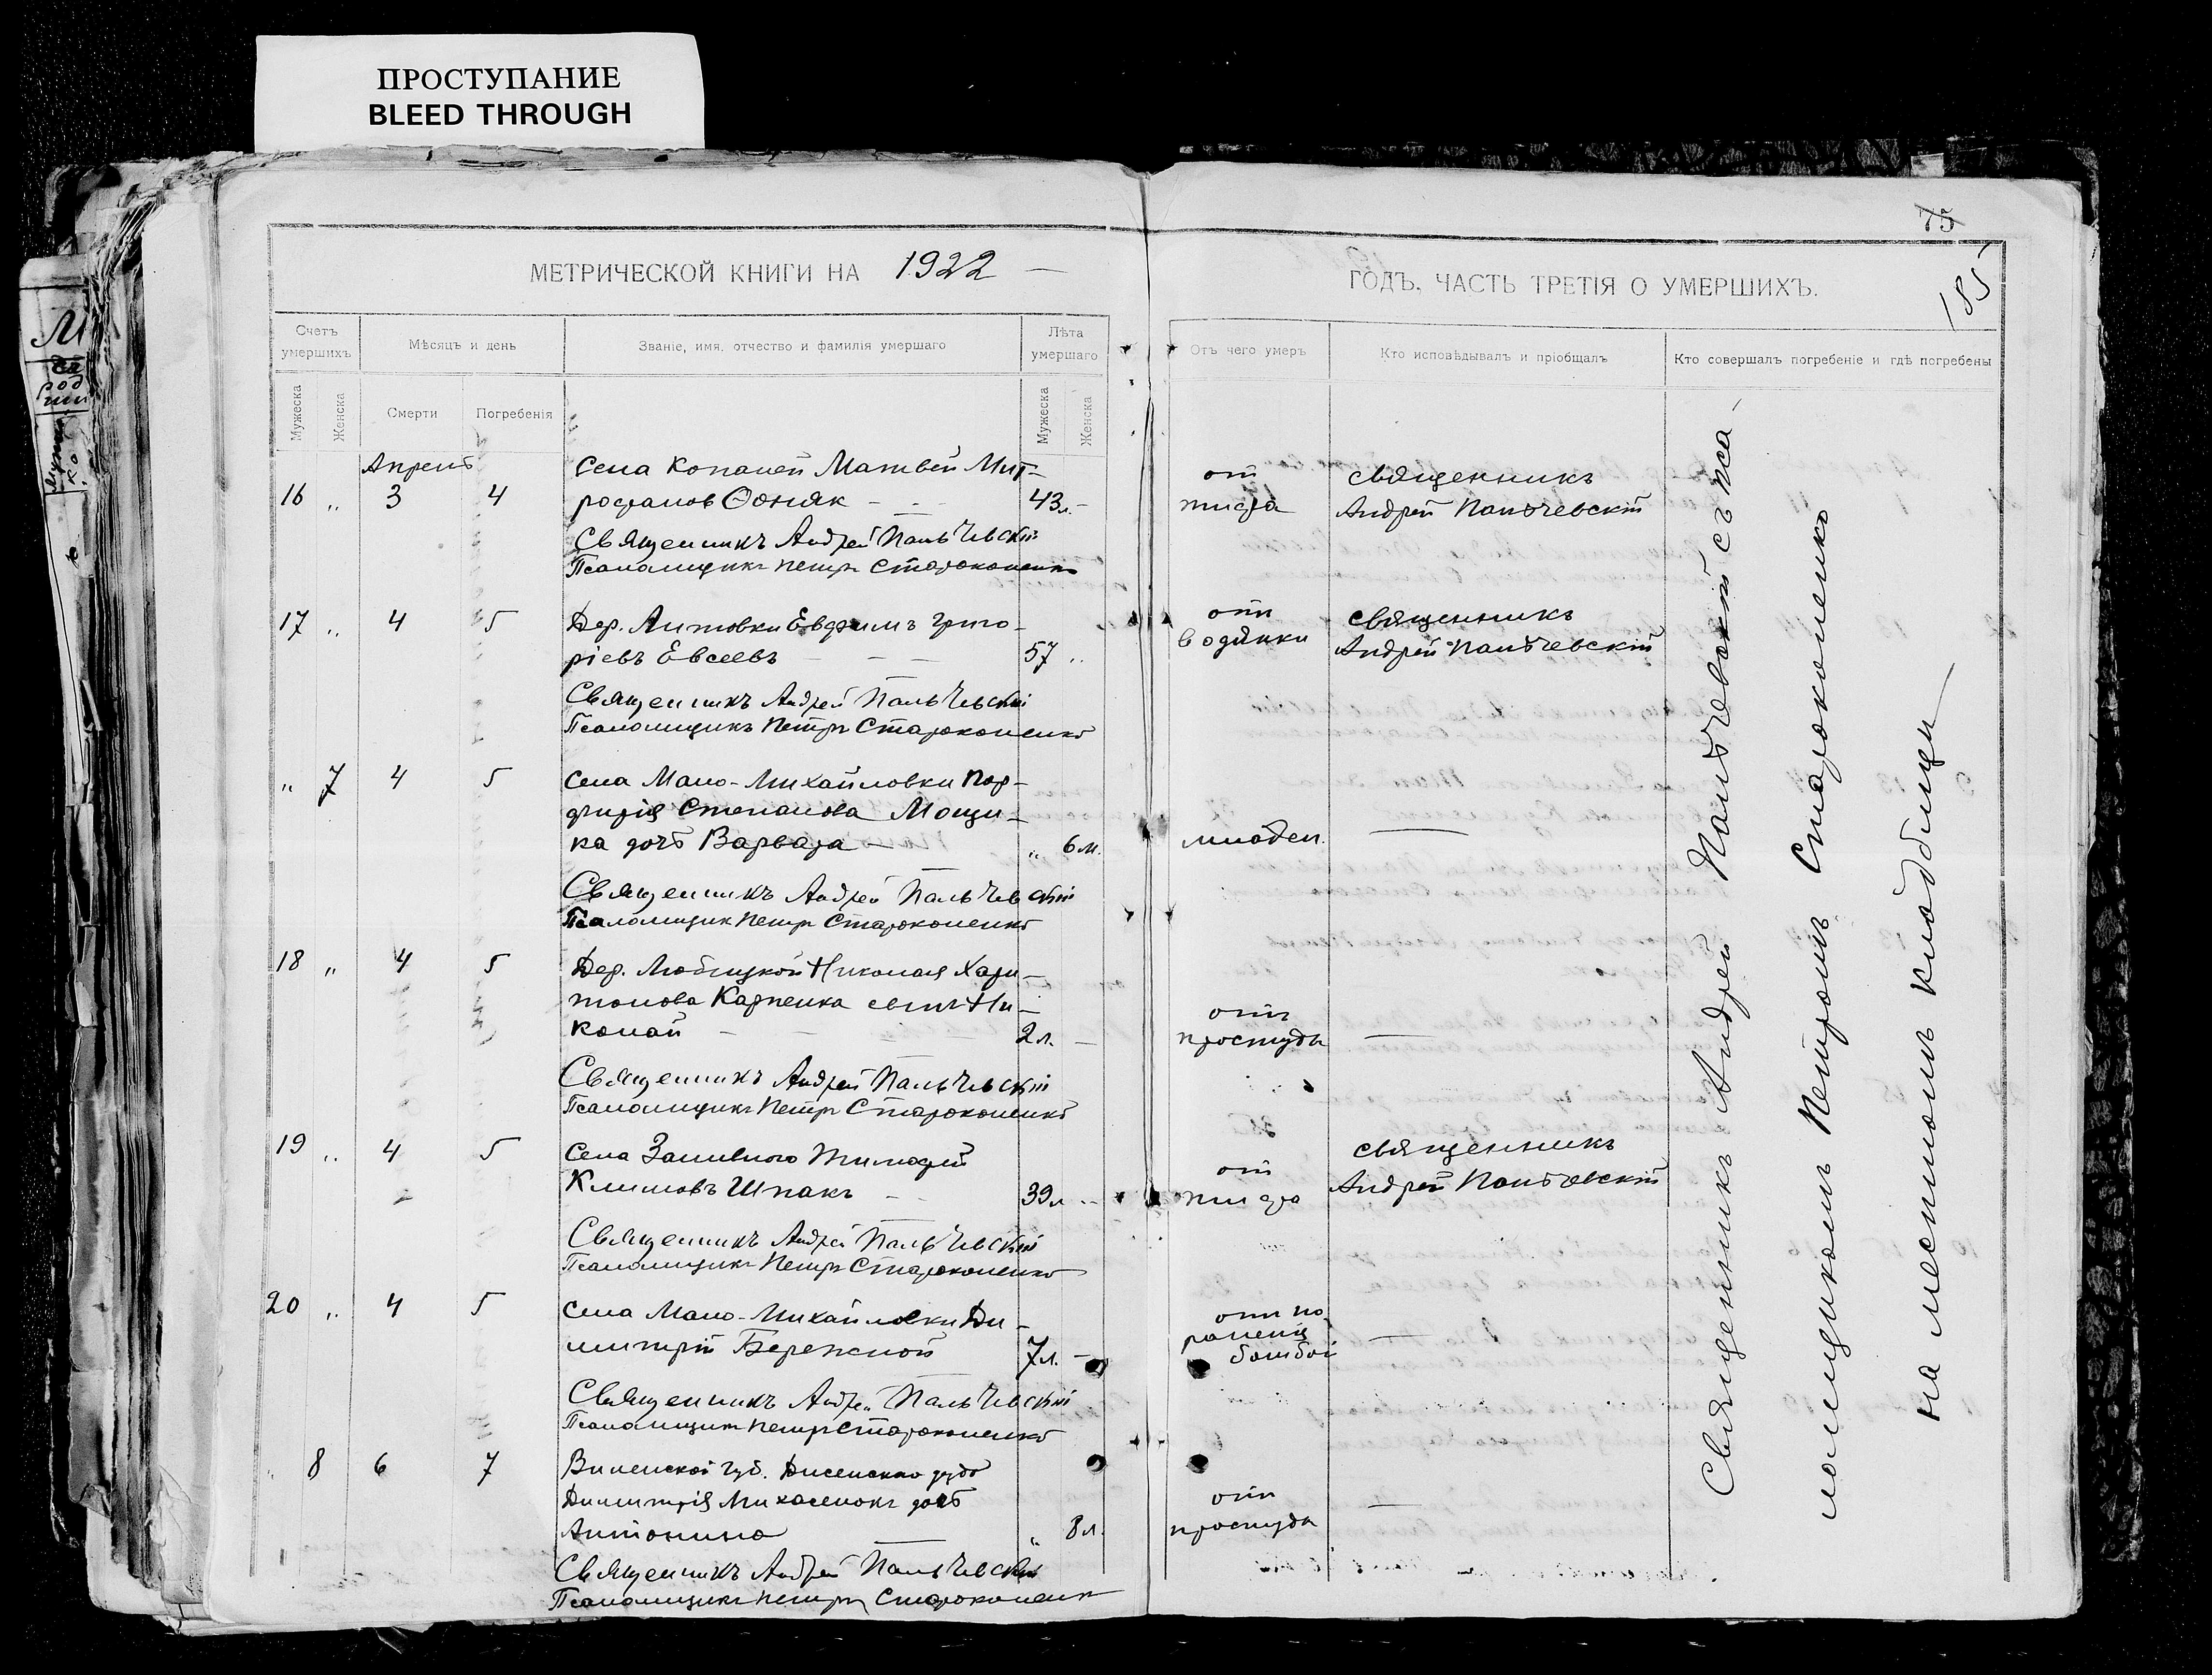 ПРОСТУПАНИЕ
BLEED THROUGH
75
185
МЕТРИЧЕСКОЙ КНИГИ НА 1922 —
Счетъ умершихъ
Мѣсяцъ и день
Званіе, имя, отчество и фамилія умершаго
Лѣта умершаго
Мужеска
Женска
Смерти
Погребенія
Мужеска
Женска
Апрель
Села Копаней Матвей Мит-
16 „ 3 4 рофанов Ѳоняк — 43 л. —
Священникъ Андрей Пальчевскій
Псаломщикъ Петръ Староконенко
17 „ 4 5 Дер. Антовки Евфимъ Григо-
ріевъ Евсеевъ — — — 57 „
Священникъ Андрей Пальчевскій
Псаломщикъ Петръ Староконенко
„ 7 4 5 Села Мало-Михайловки Пор-
фирія Степанова Мощи-
ка дочь Варвара — „ 6 м.
Священникъ Андрей Пальчевскій
Псаломщик Петръ Староконенко
18 „ 4 5 Дер. Любицкой Николая Хари-
тонова Карпенка сынъ Ни-
колай — — 2 л. —
Священникъ Андрей Пальчевскій
Псаломщикъ Петръ Староконенко
19 „ 4 5 Села Заливного Тимофей
Климовъ Шпакъ — 39 л —
Священникъ Андрей Пальчевскій
Псаломщикъ Петръ Староконенко
20 „ 4 5 Села Мало-Михайловки Ди-
митрій Бережной 7 л. —
Священникъ Андрей Пальчевскій
Псаломщикъ Петръ Староконенко
„ 8 6 7 Виленской губ. Дисенскаго
Димитрія Михасенокъ дочь
Антонина — „ 8 л.
Священникъ Андрей Пальчевскій
Псаломщикъ Петръ Староконенко
ГОДЪ, ЧАСТЬ ТРЕТІЯ О УМЕРШИХЪ.
Отъ чего умеръ
Кто исповѣдывалъ и пріобщалъ
Кто совершалъ погребеніе и гдѣ погребены
от
тифа
священникъ
Андрей Пальчевскій
отъ
водянки
священникъ
Андрей Пальчевскій
младен. —
отъ
простуды —
от
тифа
священникъ
Андрей Пальчевскій
отъ по
раненія
бомбой —
отъ
простуды —
Священникъ Андрей Пальчевскій съ пса-
ломщикомъ Петромъ Староконенко
на местномъ кладбищи —